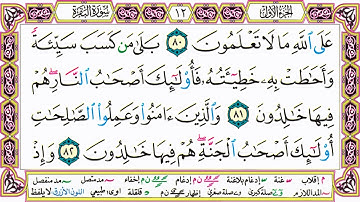 الجزء الأول ١٢ سورة البقرة
عَلَى ٱللَّهِ مَا لَا تَعْلَمُونَ ٨٠ بَلَىٰ مَن كَسَبَ سَيِّئَةً
وَأَحَٰطَتْ بِهِۦ خَطِيٓـَٔتُهُۥ فَأُو۟لَٰٓئِكَ أَصْحَٰبُ ٱلنَّارِ ۖ هُمْ
فِيهَا خَٰلِدُونَ ٨١ وَٱلَّذِينَ ءَامَنُوا۟ وَعَمِلُوا۟ ٱلصَّٰلِحَٰتِ
أُو۟لَٰٓئِكَ أَصْحَٰبُ ٱلْجَنَّةِ ۖ هُمْ فِيهَا خَٰلِدُونَ ٨٢ وَإِذْ